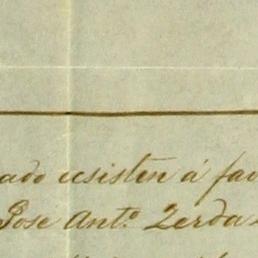 ado ecsisten á fav
Jose Ant.º Zerda